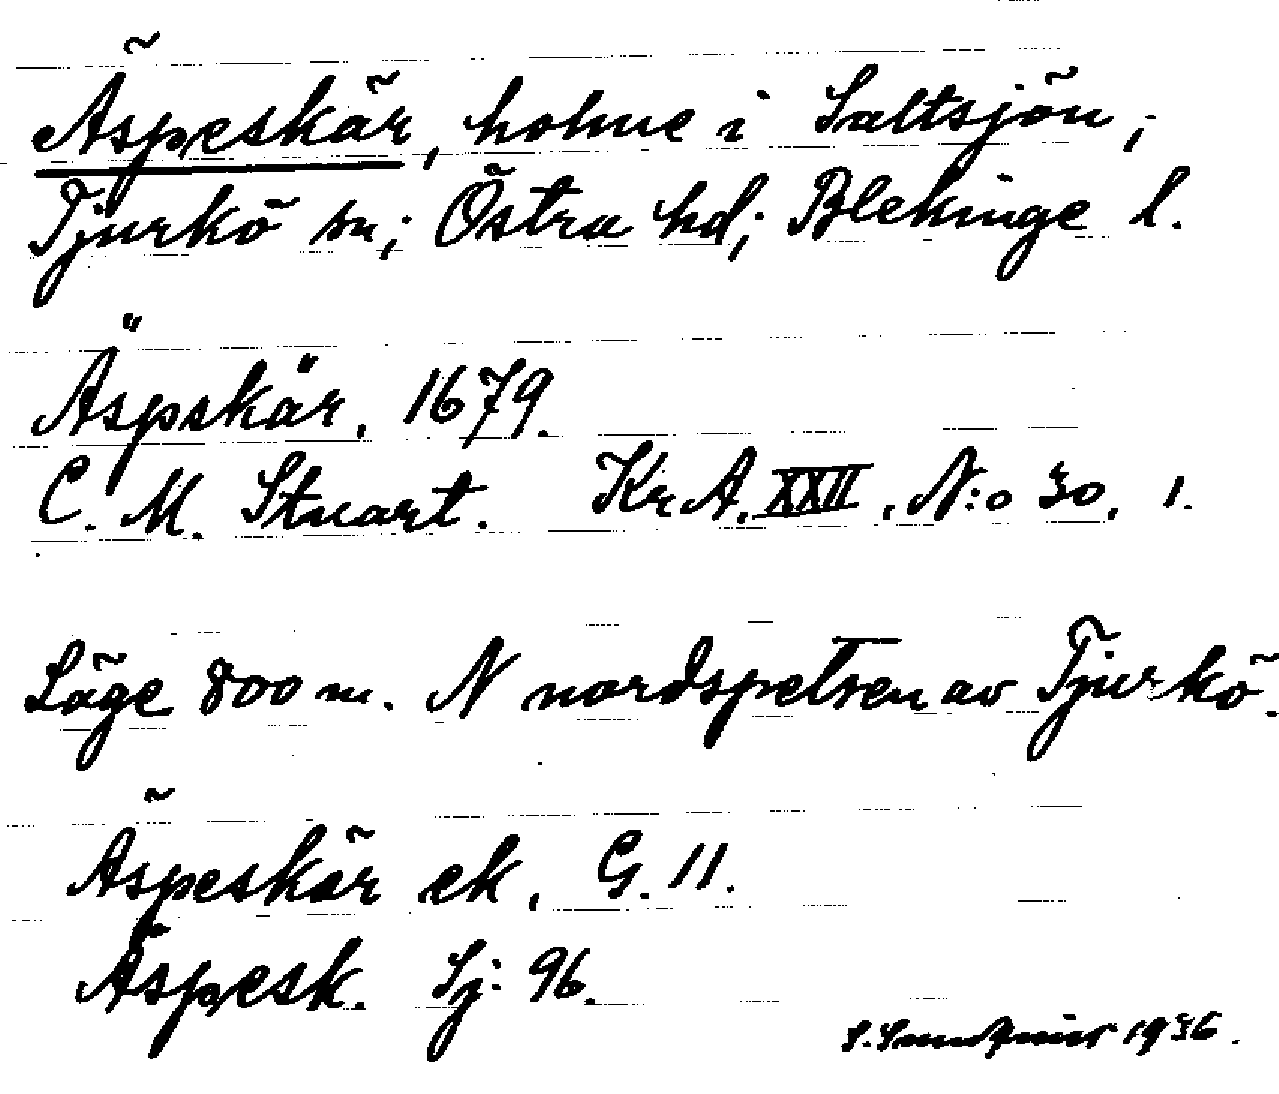 Äspeskär, holme i Saltsjön,
Tjurkö sn; Östra hd; Blekinge l.
Äspskär. 1679.
C. M. Stuart. Kr A. XXII, N:o 30, 1.
Läge 800 m. N nordspetsen av Tjurkö.
Äspeskär ek. G. 11.
Äspesk. Sj: 96.
1936.